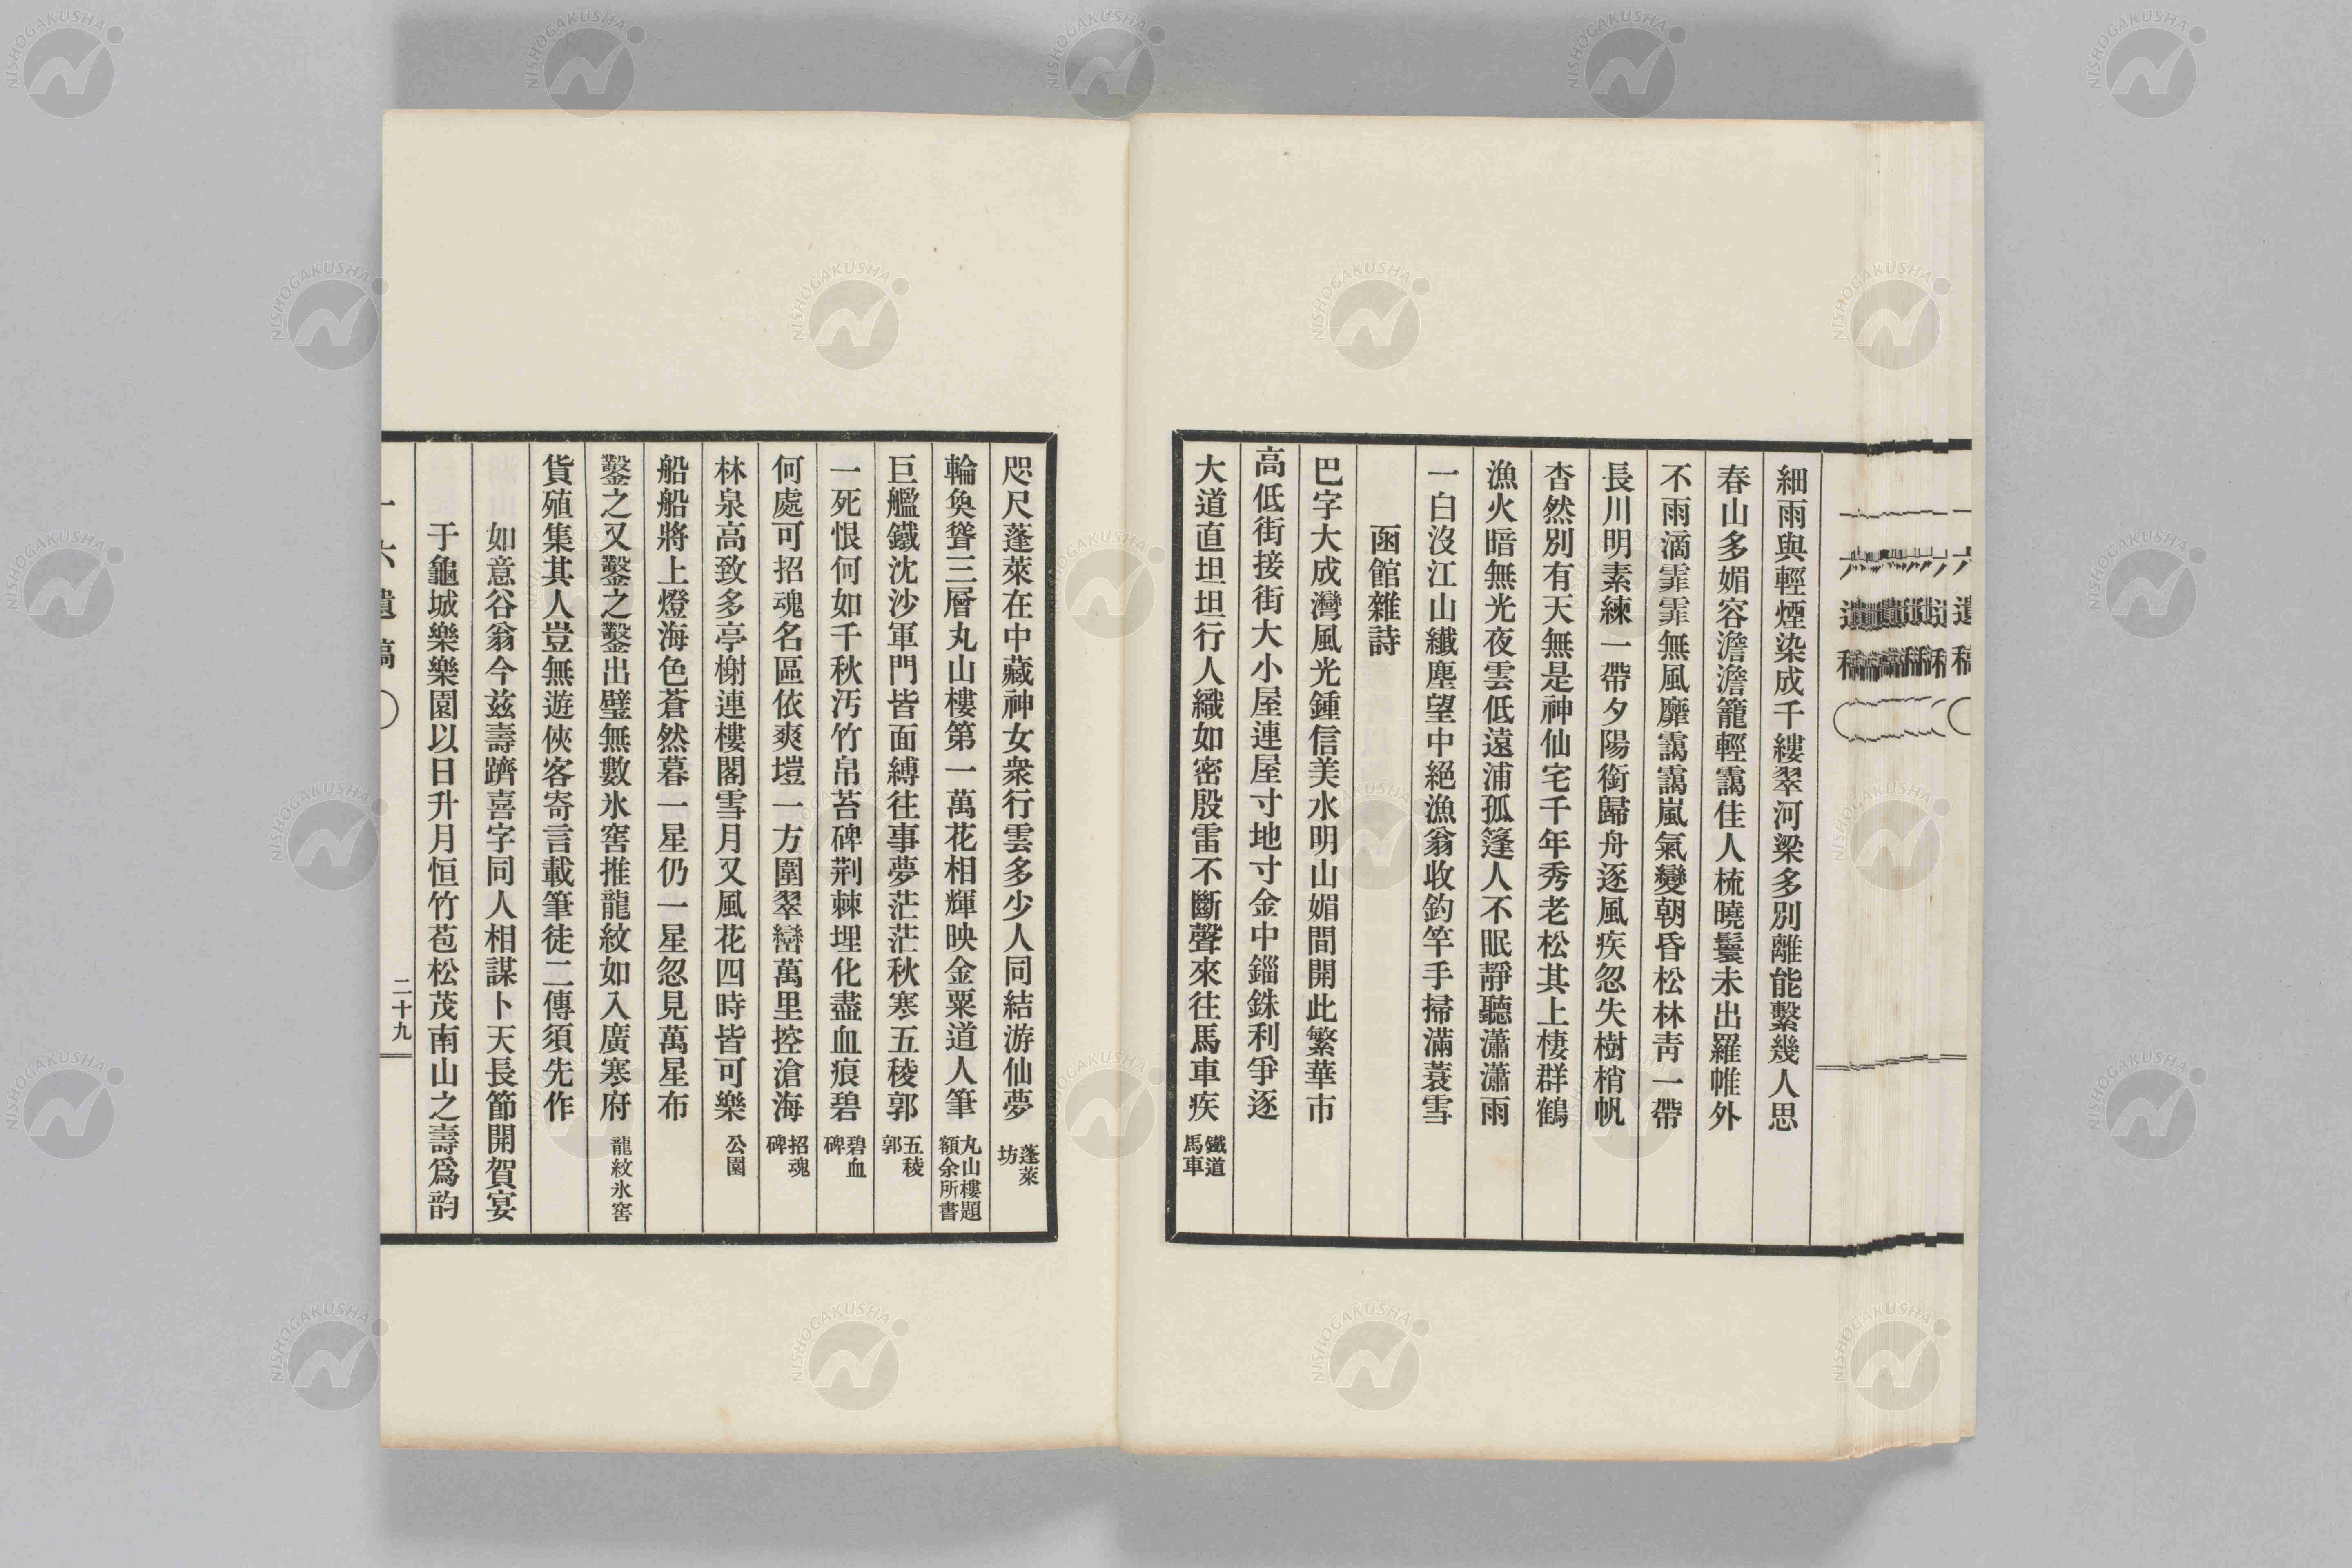 細雨與輕煙染成千縷翠河梁多別離能繫幾人思
春山多媚容澹澹籠輕靄佳人梳曉鬟未出羅帷外
不雨滴霏霏無風靡靄靄嵐氣變朝昏松林青一帶
長川明素練一帶夕陽銜歸舟逐風疾忽失樹梢帆
杳然別有天無是神仙宅千年秀老松其上棲群鶴
漁火暗無光夜雲低遠浦孤篷人不眠靜聽瀟瀟雨
一白沒江山纖塵望中絕漁翁收釣竿手掃滿蓑雪
函館雜詩
巴字大成灣風光鍾信美水明山媚間開此繁華市
高低街接街大小屋連屋寸地寸金中錙銖利爭逐
大道直坦坦行人織如密殷雷不斷聲來往馬車疾 鐵道馬車
咫尺蓬萊在中藏神女衆行雲多少人同結游仙夢 蓬萊坊
輪奐聳三層丸山樓第一萬花相輝映金粟道人筆 丸山樓題額余所書
巨艦鐵沈沙軍門皆面縛往事夢茫茫秋寒五稜郭 五稜郭
一死恨何如千秋汚竹帛苔碑荆棘埋化盡血痕碧 碧血碑
何處可招魂名區依爽塏一方圍翠巒萬里控滄海 招魂碑
林泉高致多亭榭連樓閣雪月又風花四時皆可樂 公園
船船將上燈海色蒼然暮一星仍一星忽見萬星布
鑿之又鑿之鑿出璧無數氷窖推龍紋如入廣寒府 龍紋氷窖
貨殖集其人豈無遊俠客寄言載筆徒二傳須先作
如意谷翁今玆壽躋喜字同人相謀卜天長節開賀宴
于龜城樂樂園以日升月恒竹苞松茂南山之壽爲韵
一六遺稿
二十九